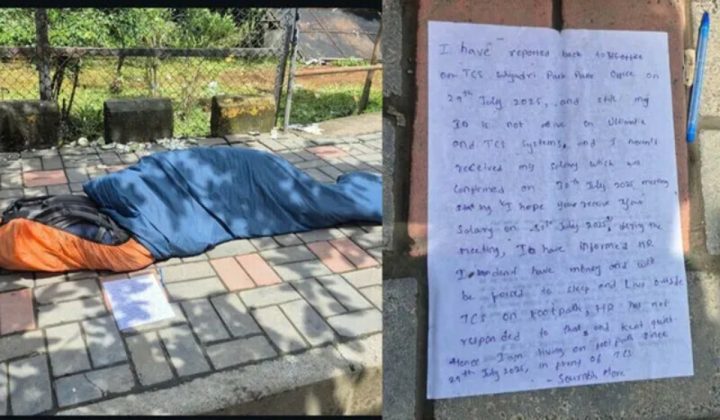 I have reported back to office
on TCS Sahyadri Park Pune Office on
29th July 2025, and still my
ID is not active on Ultimatix
and TCS systems, and I haven't
received my salary which was
confirmed on 30th July 2025 meeting
"I hope you receive your
Salary on 31st July 2025", during the
meeting, I have informed HR
I have money and will
be forced to sleep and live outside
TCS on footpath, HR has not
responded to that and kept quiet.
Hence I am living on footpath since
29th July 2025, in front of TCS
- Saurabh More